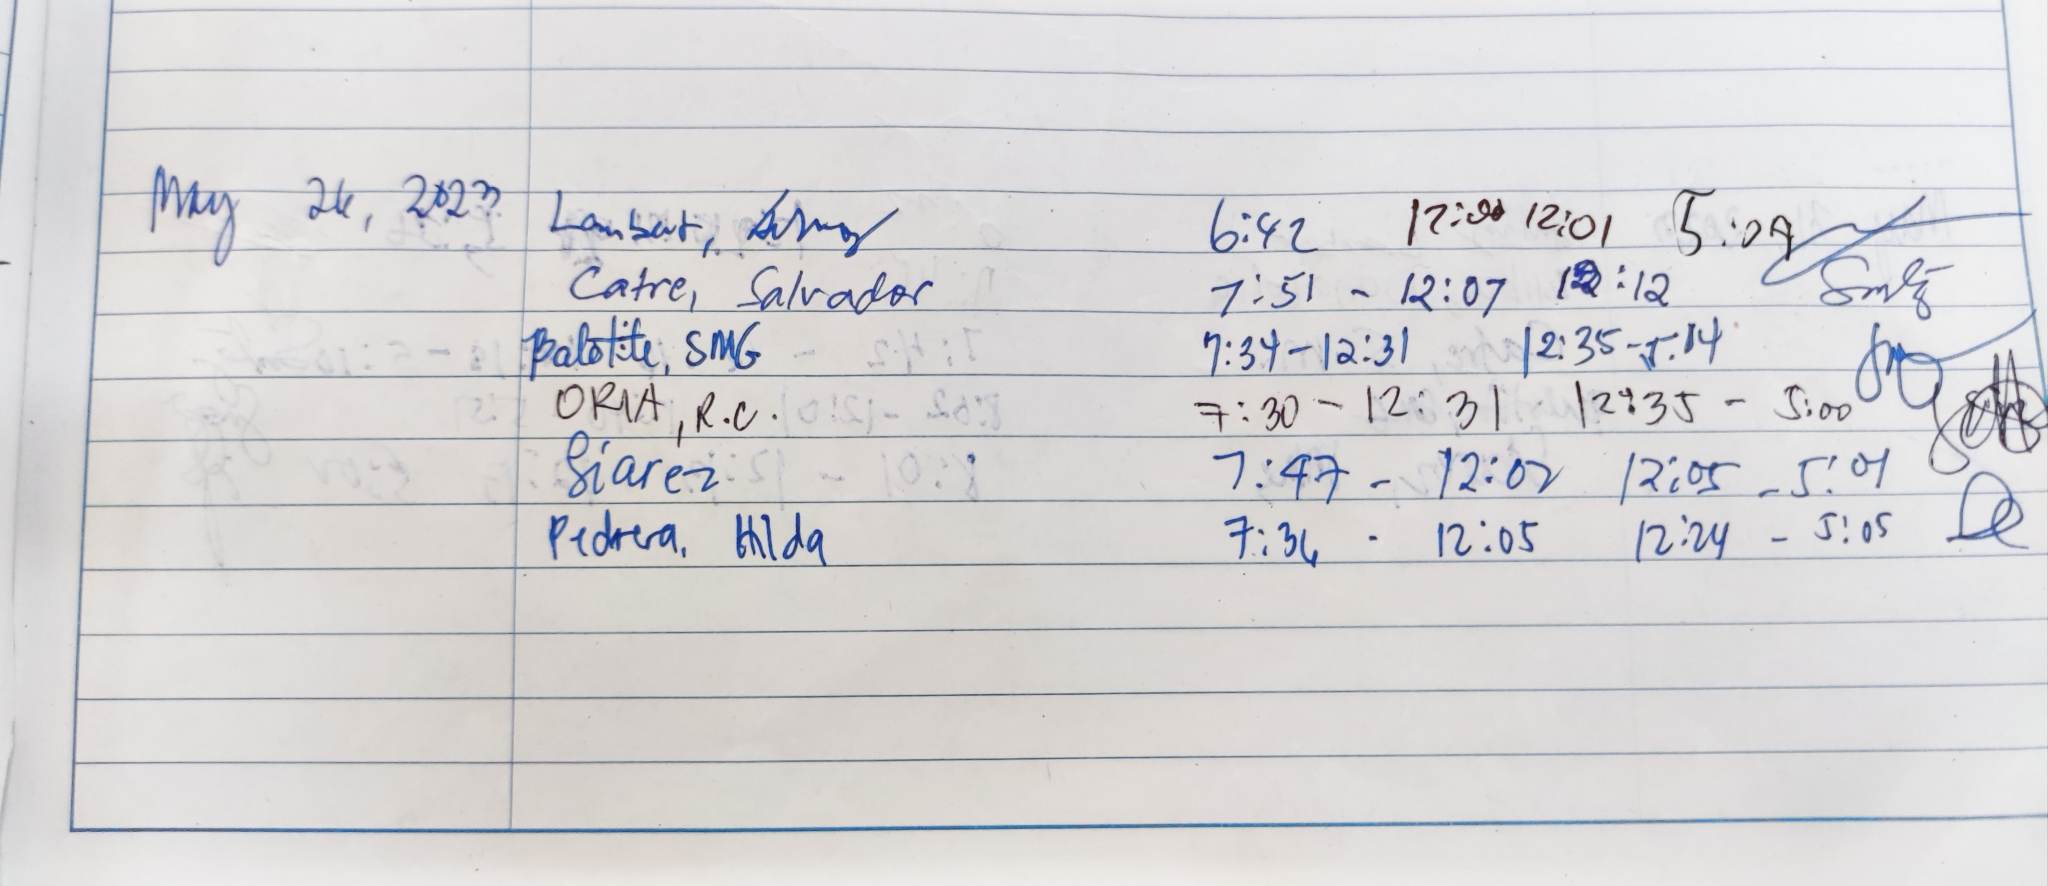 May 26, 2023 Lambert, 6:42 12:00 12:01 5:09
Catre, Salvador 7:51 - 12:07 12:12
Balotite, SMG 7:34 - 12:31 12:35 - 5:14
ORIA, R.C. 7:30 - 12:31 12:35 - 5:00
Siarez 7:47 - 12:02 12:05 - 5:01
Pedrera, Hilda 7:36 - 12:05 12:24 - 5:05